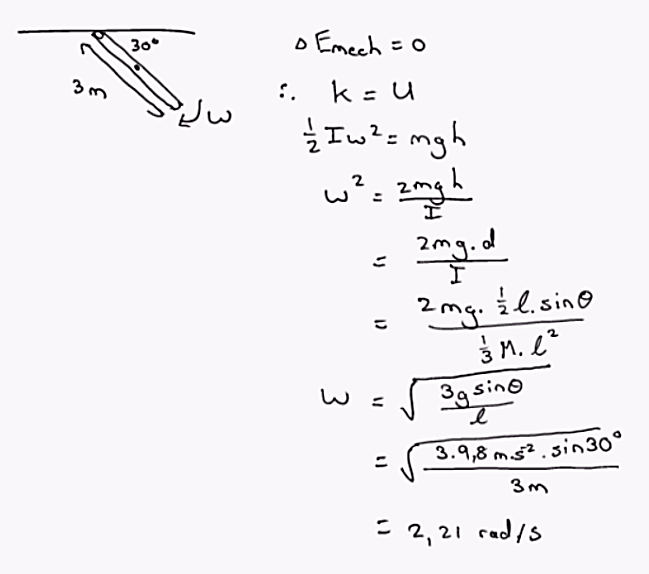 30°
3m
ω
Δ Emech = 0
∴ k = U
½ I ω² = mgh
ω² = 2mgh / I
= 2mg.d / I
= 2mg. ½ l. sinθ / ⅓ M. l²
ω = √(3g sinθ / l)
= √(3.9,8 m.s⁻² . sin30° / 3m)
= 2,21 rad/s